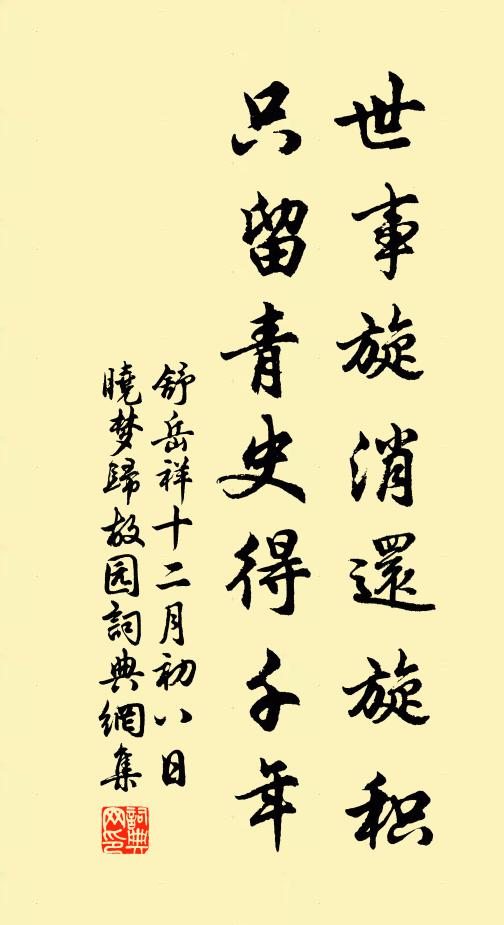 世事旋消還旋积
只留青史得千年
舒岳祥十二月初八日
曉梦歸故园詞典網集
詞典網印